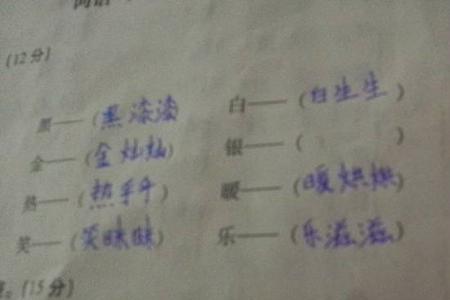 词语
(12分)
黑——(黑漆漆 白——(白生生)
金——(金灿灿) 银——( )
热——(热乎乎) 暖——(暖烘烘)
笑——(笑眯眯) 乐——(乐滋滋)
。(15分)